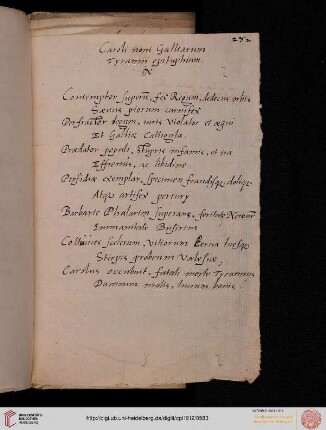 252
Caroli noni Galliarum
Tyranni epitaphium.
Contemptor superum, fex Regum, dedecus orbis
Saevus piorum carnifex
Perfractor legum, iuris violator et aequi
Et Galliae Caligula.
Praedator populi, stupris infamis, et ira
Effrenis, ac libidine.
Perfidiae exemplar, specimen fraudisque, dolique
Atque artifex periury
Barbarie Phalarim superans, feritate Neronem
Immanitate Busirim
Colluvies scelerum, vitiorum Lerna luesque
Stirpis probrum Valesiae
Carolus occubuit, fatali morte Tyrannus
Damnum malis, lucrum bonis.
UNIVERSITÄTS-
BIBLIOTHEK
HEIDELBERG
http://digi.ub.uni-heidelberg.de/diglit/cpl1912/0583